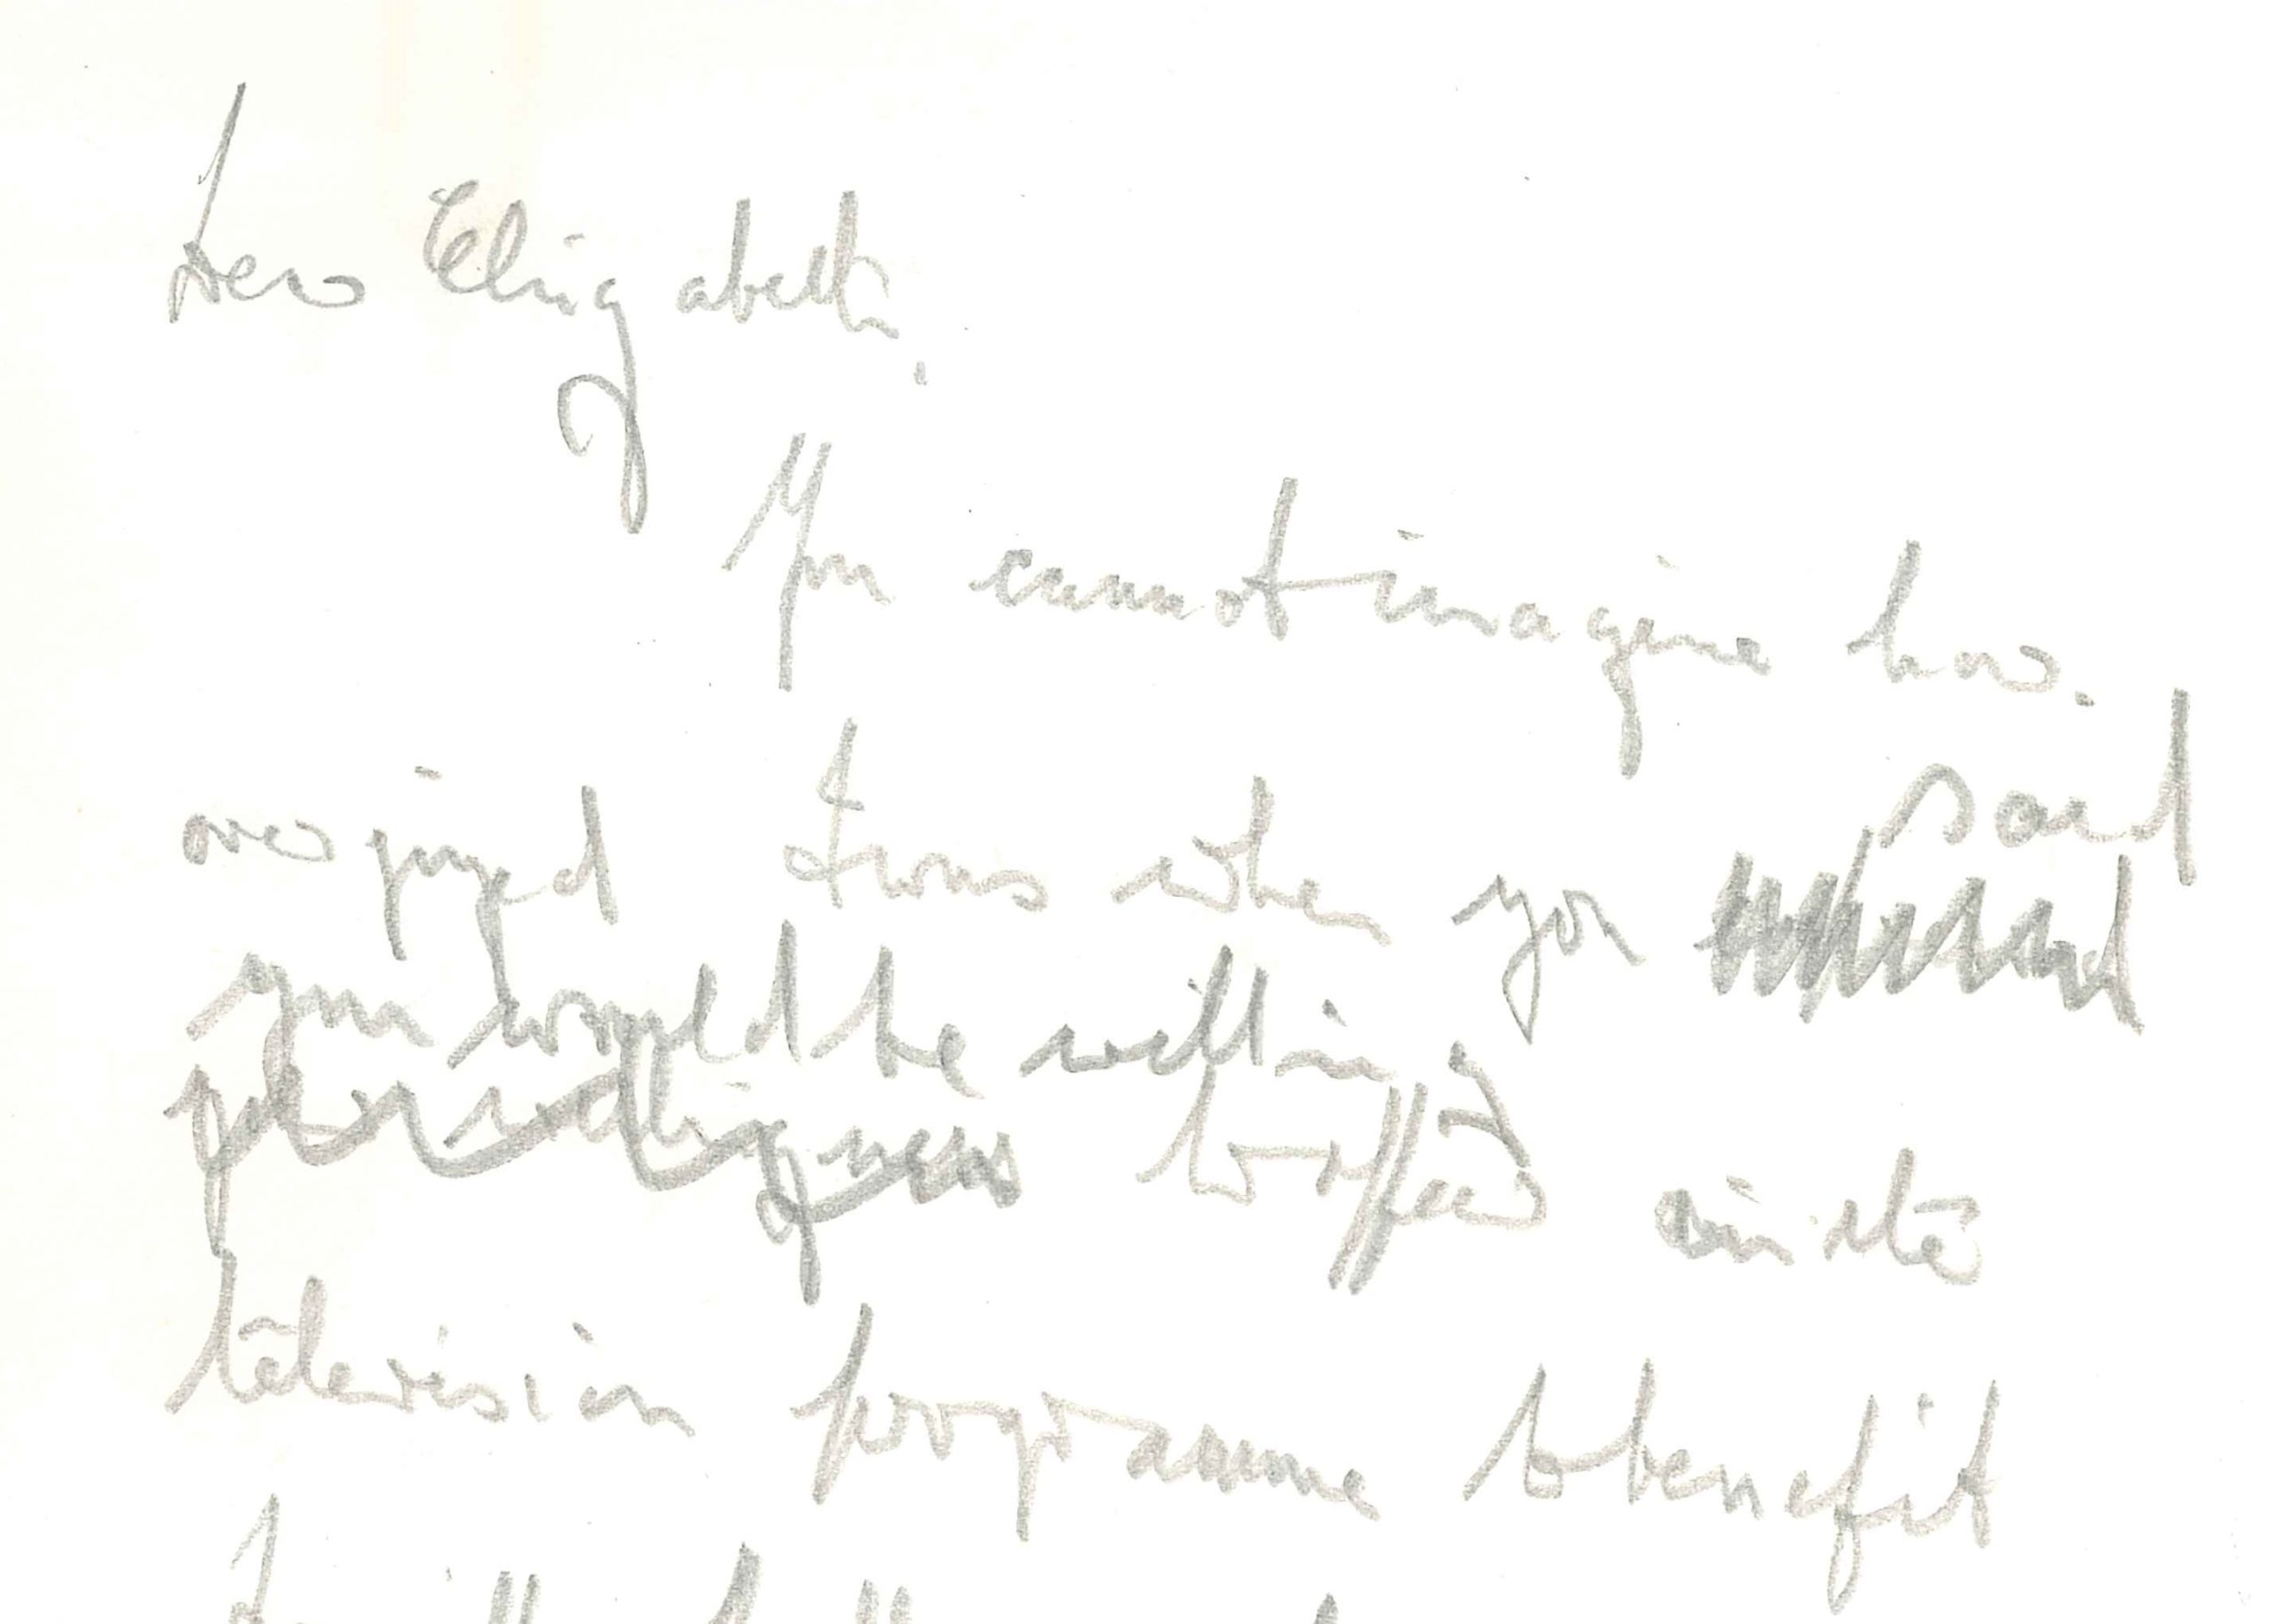 Dear Elizabeth,
You cannot imagine how
overjoyed I was when you said
you would be willing
your willingness to appear in the
television programme to benefit